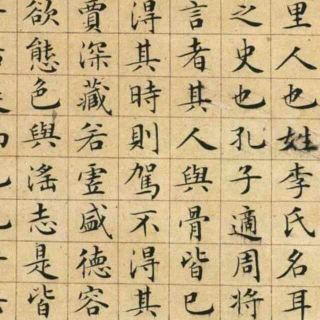 里人也姓李氏名耳
之史也孔子適周將
言者其人與骨皆已
得其時則駕不得其
賈深藏若虛盛德容
欲態色與滛志是皆